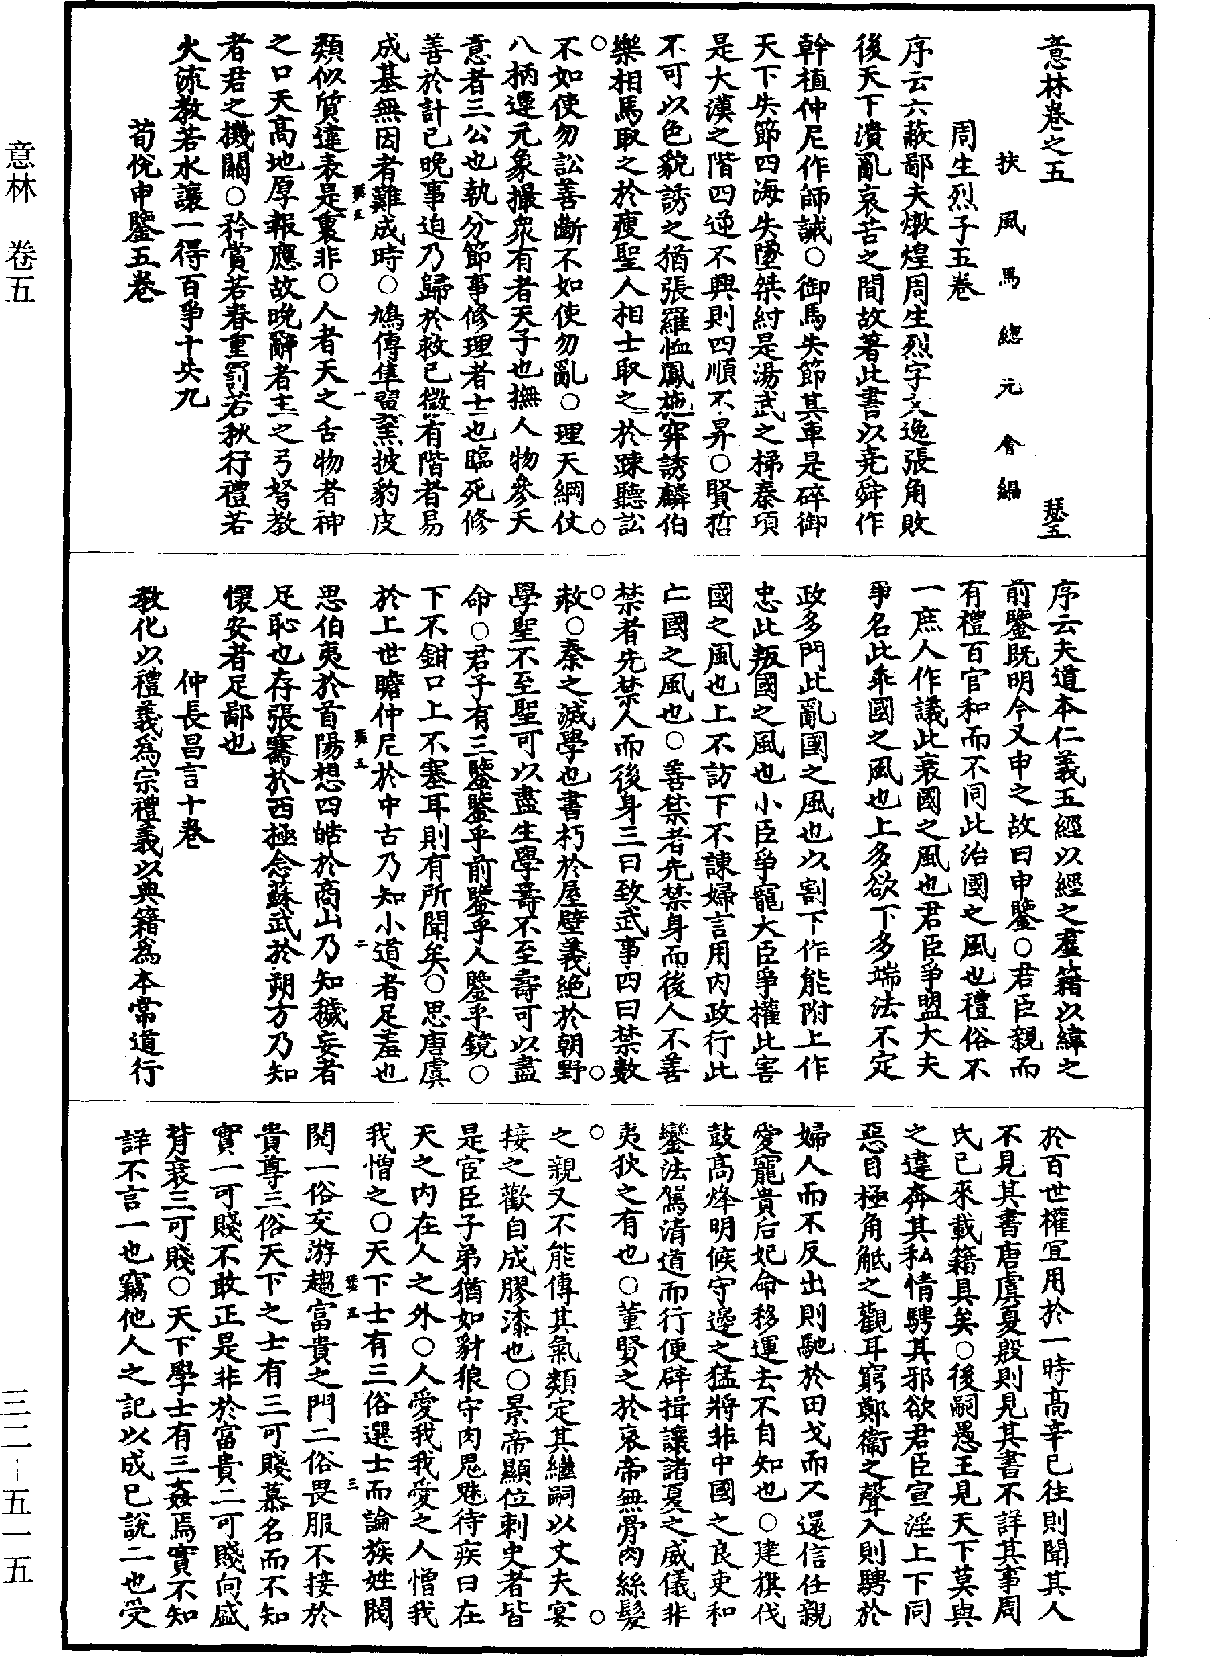 意林卷之五
瑟五
扶風馬總元會編
周生烈子五卷
序云六蔽鄙夫燉煌周生烈字文逸張角敗
後天下潰亂哀苦之間故著此書以堯舜作
幹植仲尼作師誡○御馬失節其車是碎御
天下失節四海失墜桀紂是湯武之梯秦項
是大漢之階四逆不興則四順不昇○賢哲
不可以色貌誘之猶張羅恤鳳施穽誘麟伯
樂相馬取之於瘦聖人相士取之於踈聽訟
○不如使勿訟善斷不如使勿亂○理天綱仗○
八柄遵元象撮衆有者天子也撫人物參天
意者三公也執分節事修理者士也臨死修
善於計已晚事迫乃歸於救已微有階者易
成基無因者難成時○鳩傳隼翼羔披豹皮
瑟五
一
類似質違表是裏非○人者天之舌物者神
之口天高地厚報應故晚辭者主之弓弩教
者君之機關○矜賞若春重罰若秋行禮若
火流教若水讓一得百爭十失九
荀悅申鑒五卷
序云夫道本仁義五經以經之羣籍以緯之
前鑒既明今又申之故曰申鑒○君臣親而
有禮百官和而不同此治國之風也禮俗不
一庶人作議此衰國之風也君臣爭盟大夫
爭名此乖國之風也上多欲下多端法不定
政多門此亂國之風也以割下作能附上作
忠此叛國之風也小臣爭寵大臣爭權此害
國之風也上不訪下不諫婦言用內政行此
亡國之風也○善禁者先禁身而後人不善
禁者先禁人而後身三曰致武事四曰禁數
○赦○秦之滅學也書朽於屋壁義絕於朝野○
學聖不至聖可以盡生學壽不至壽可以盡
命○君子有三鑒鑒乎前鑒乎人鑒乎鏡○
下不鉗口上不塞耳則有所聞矣○思唐虞
於上世瞻仲尼於中古乃知小道者足羞也
瑟五
二
思伯夷於首陽想四皓於商山乃知穢妄者
足恥也存張騫於西極念蘇武於朔方乃知
懷安者足鄙也
仲長昌言十卷
教化以禮義爲宗禮義以典籍爲本常道行
於百世權宜用於一時高辛已往則聞其人
不見其書唐虞夏殷則見其書不詳其事周
氏已來載籍具矣○後嗣愚王見天下莫與
之違奔其私情騁其邪欲君臣宣淫上下同
惡目極角觝之觀耳窮鄭衛之聲入則騁於
婦人而不反出則馳於田戈而不還信任親
愛寵貴后妃命移運去不自知也○建旗伐
鼓高烽明候守邊之猛將非中國之良吏和
鑾法駕清道而行便辟揖讓諸夏之威儀非
夷狄之有也○董賢之於哀帝無骨肉絲髮
○之親又不能傳其氣類定其繼嗣以丈夫宴○
接之歡自成膠漆也○景帝顯位刺史者皆
是宦臣子弟猶如豺狼守肉鬼魅待疾曰在
天之內在人之外○人愛我我愛之人憎我
我憎之○天下士有三俗選士而論族姓閥
瑟五
三
閱一俗交游趨富貴之門二俗畏服不接於
貴尊三俗天下之士有三可賤慕名而不知
實一可賤不敢正是非於富貴二可賤向盛
背衰三可賤○天下學士有三姦焉實不知
詳不言一也竊他人之記以成己說二也受
意林　卷五
三二－五一五